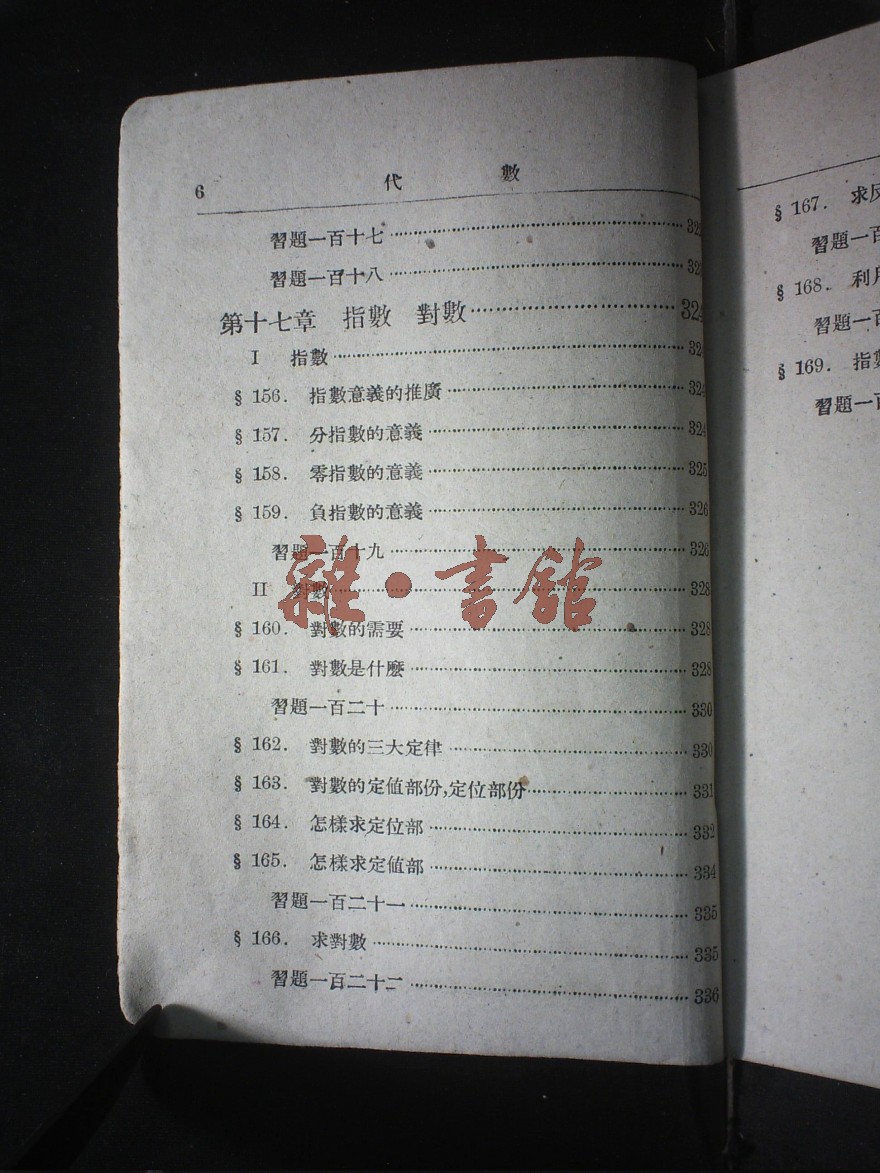 6 代 數
習題一百十七
習題一百十八
第十七章 指數 對數 324
I 指數 324
§ 156. 指數意義的推廣 324
§ 157. 分指數的意義 324
§ 158. 零指數的意義 325
§ 159. 負指數的意義 326
習題一百十九 326
II 對數 328
§ 160. 對數的需要 328
§ 161. 對數是什麼 328
習題一百二十 330
§ 162. 對數的三大定律 330
§ 163. 對數的定値部份,定位部份 331
§ 164. 怎樣求定位部 332
§ 165. 怎樣求定値部 334
習題一百二十一 335
§ 166. 求對數 335
習題一百二十二 336
雜·書館
§ 167. 求反
習題一百
§ 168. 利用
習題一百
§ 169. 指數
習題一百